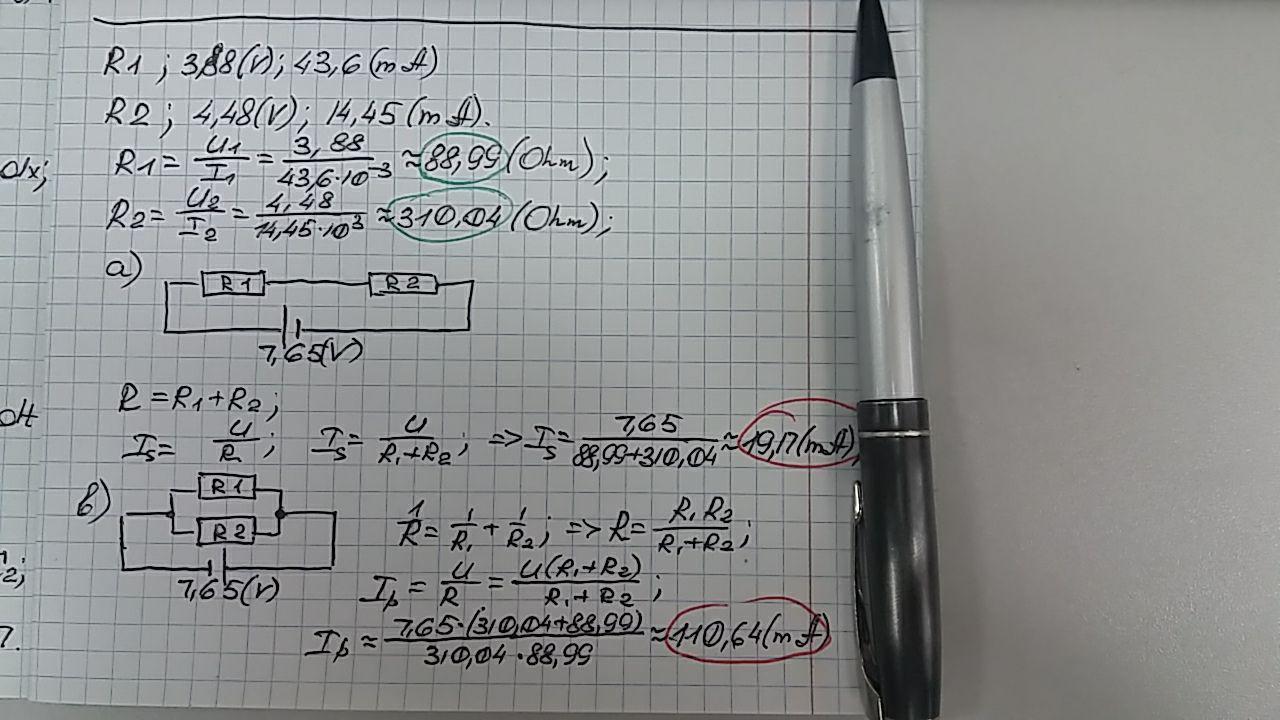 R1 ; 3,88(V); 43,6(mA)
R2 ; 4,48(V); 14,45(mA).
R1 = U1/I1 = 3,88/43,6·10⁻³ ≈ 88,99 (Ohm);
R2 = U2/I2 = 4,48/14,45·10³ ≈ 310,04 (Ohm);
a)
R1 R2
7,65(V)
R = R1 + R2;
Is = U/R; Is = U/R1+R2; => Is = 7,65/88,99+310,04 ≈ 19,17(mA);
в)
R1
R2
7,65(V)
1/R = 1/R1 + 1/R2; => R = R1 R2/R1+R2;
Ip = U/R = U(R1+R2)/R1+R2;
Ip ≈ 7,65·(310,04+88,99)/310,04·88,99 ≈ 110,64(mA)